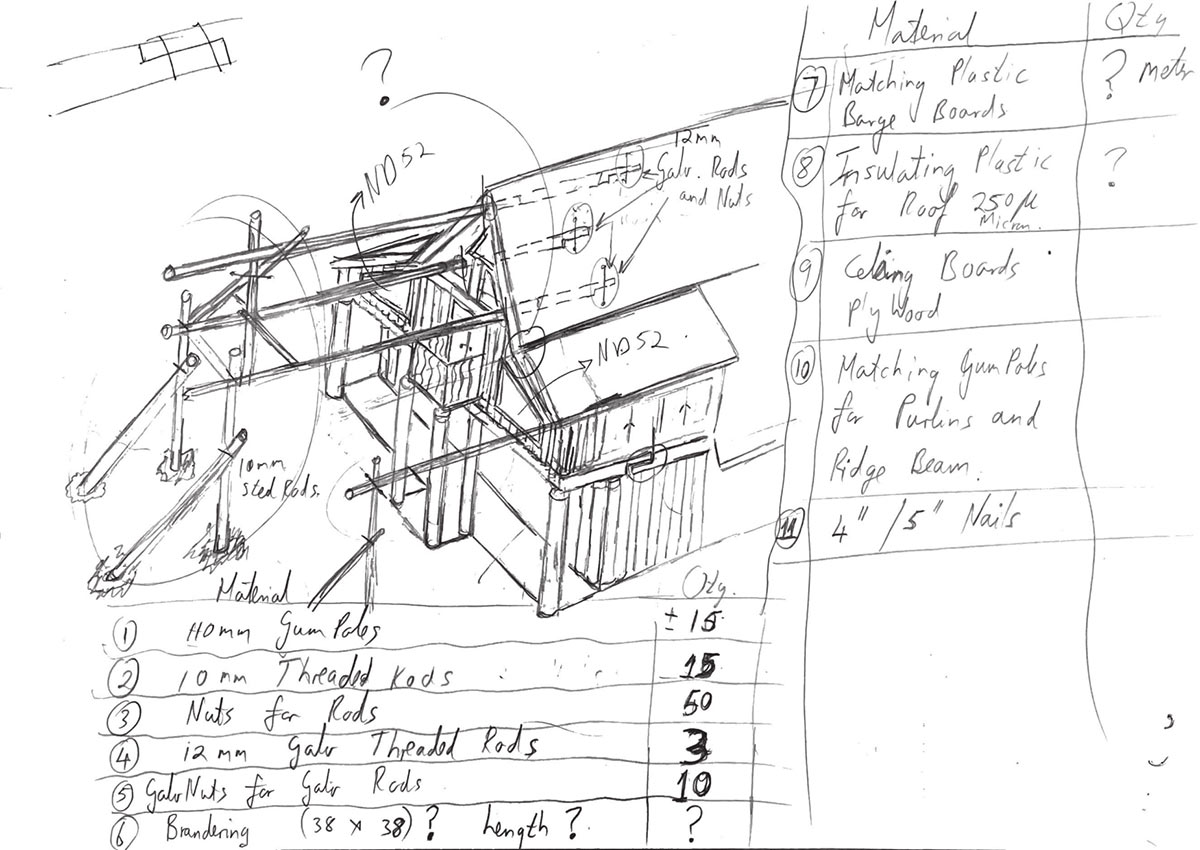 ?
ND52
12mm
Galv. Rods
and Nuts
ND52
10mm
Steel Rods.
Material Qty.
1 110mm Gum Poles ± 15
2 10mm Threaded Rods 15
3 Nuts for Rods 50
4 12mm Galv Threaded Rods 3
5 Galv Nuts for Galv Rods 10
6 Brandering (38 x 38)? Length? ?
Material Qty
7 Matching Plastic ? Meter
Barge Boards
8 Insulating Plastic ?
for Roof 250µ
Micron.
9 Celing Boards
Ply Wood
10 Matching Gum Poles
for Purlins and
Ridge Beam.
11 4" /5" Nails